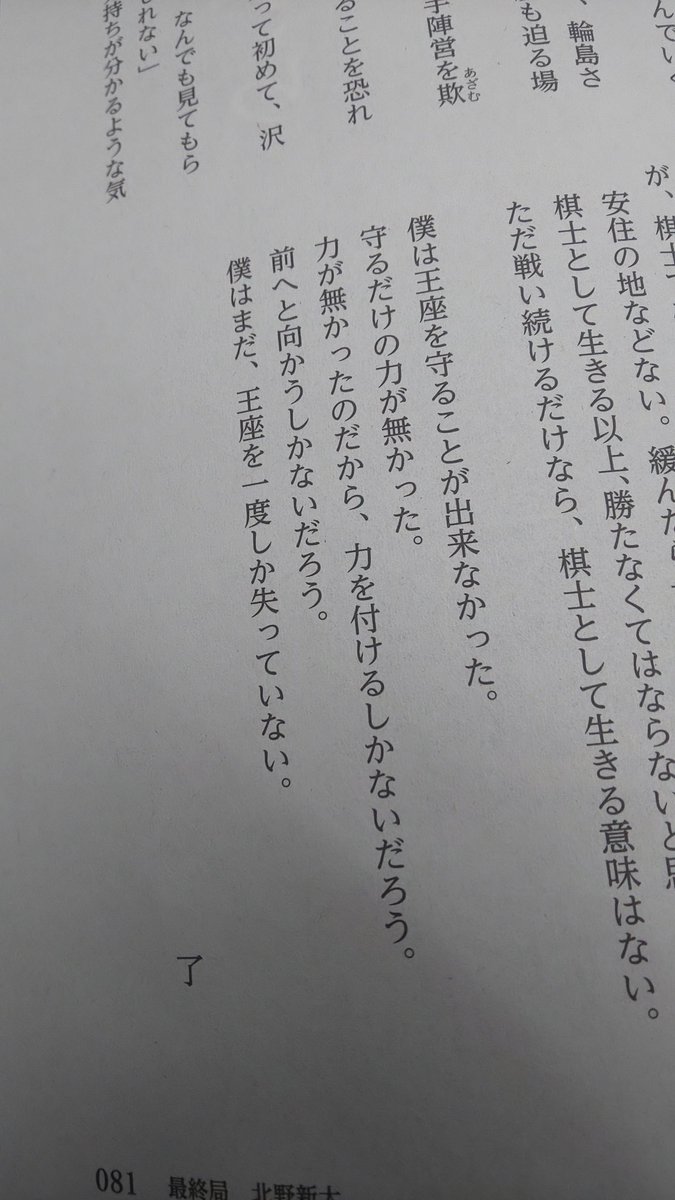 んでいく
、輪島さ
も迫る場
手陣営を欺
あざむ
ることを恐れ
って初めて、沢
なんでも見てもら
しれない」
持ちが分かるような気
が、棋士
安住の地などない。緩んだら
棋士として生きる以上、勝たなくてはならないと思
ただ戦い続けるだけなら、棋士として生きる意味はない。
僕は王座を守ることが出来なかった。
守るだけの力が無かった。
力が無かったのだから、力を付けるしかないだろう。
前へと向かうしかないだろう。
僕はまだ、王座を一度しか失っていない。
了
081 最終局 北野新太